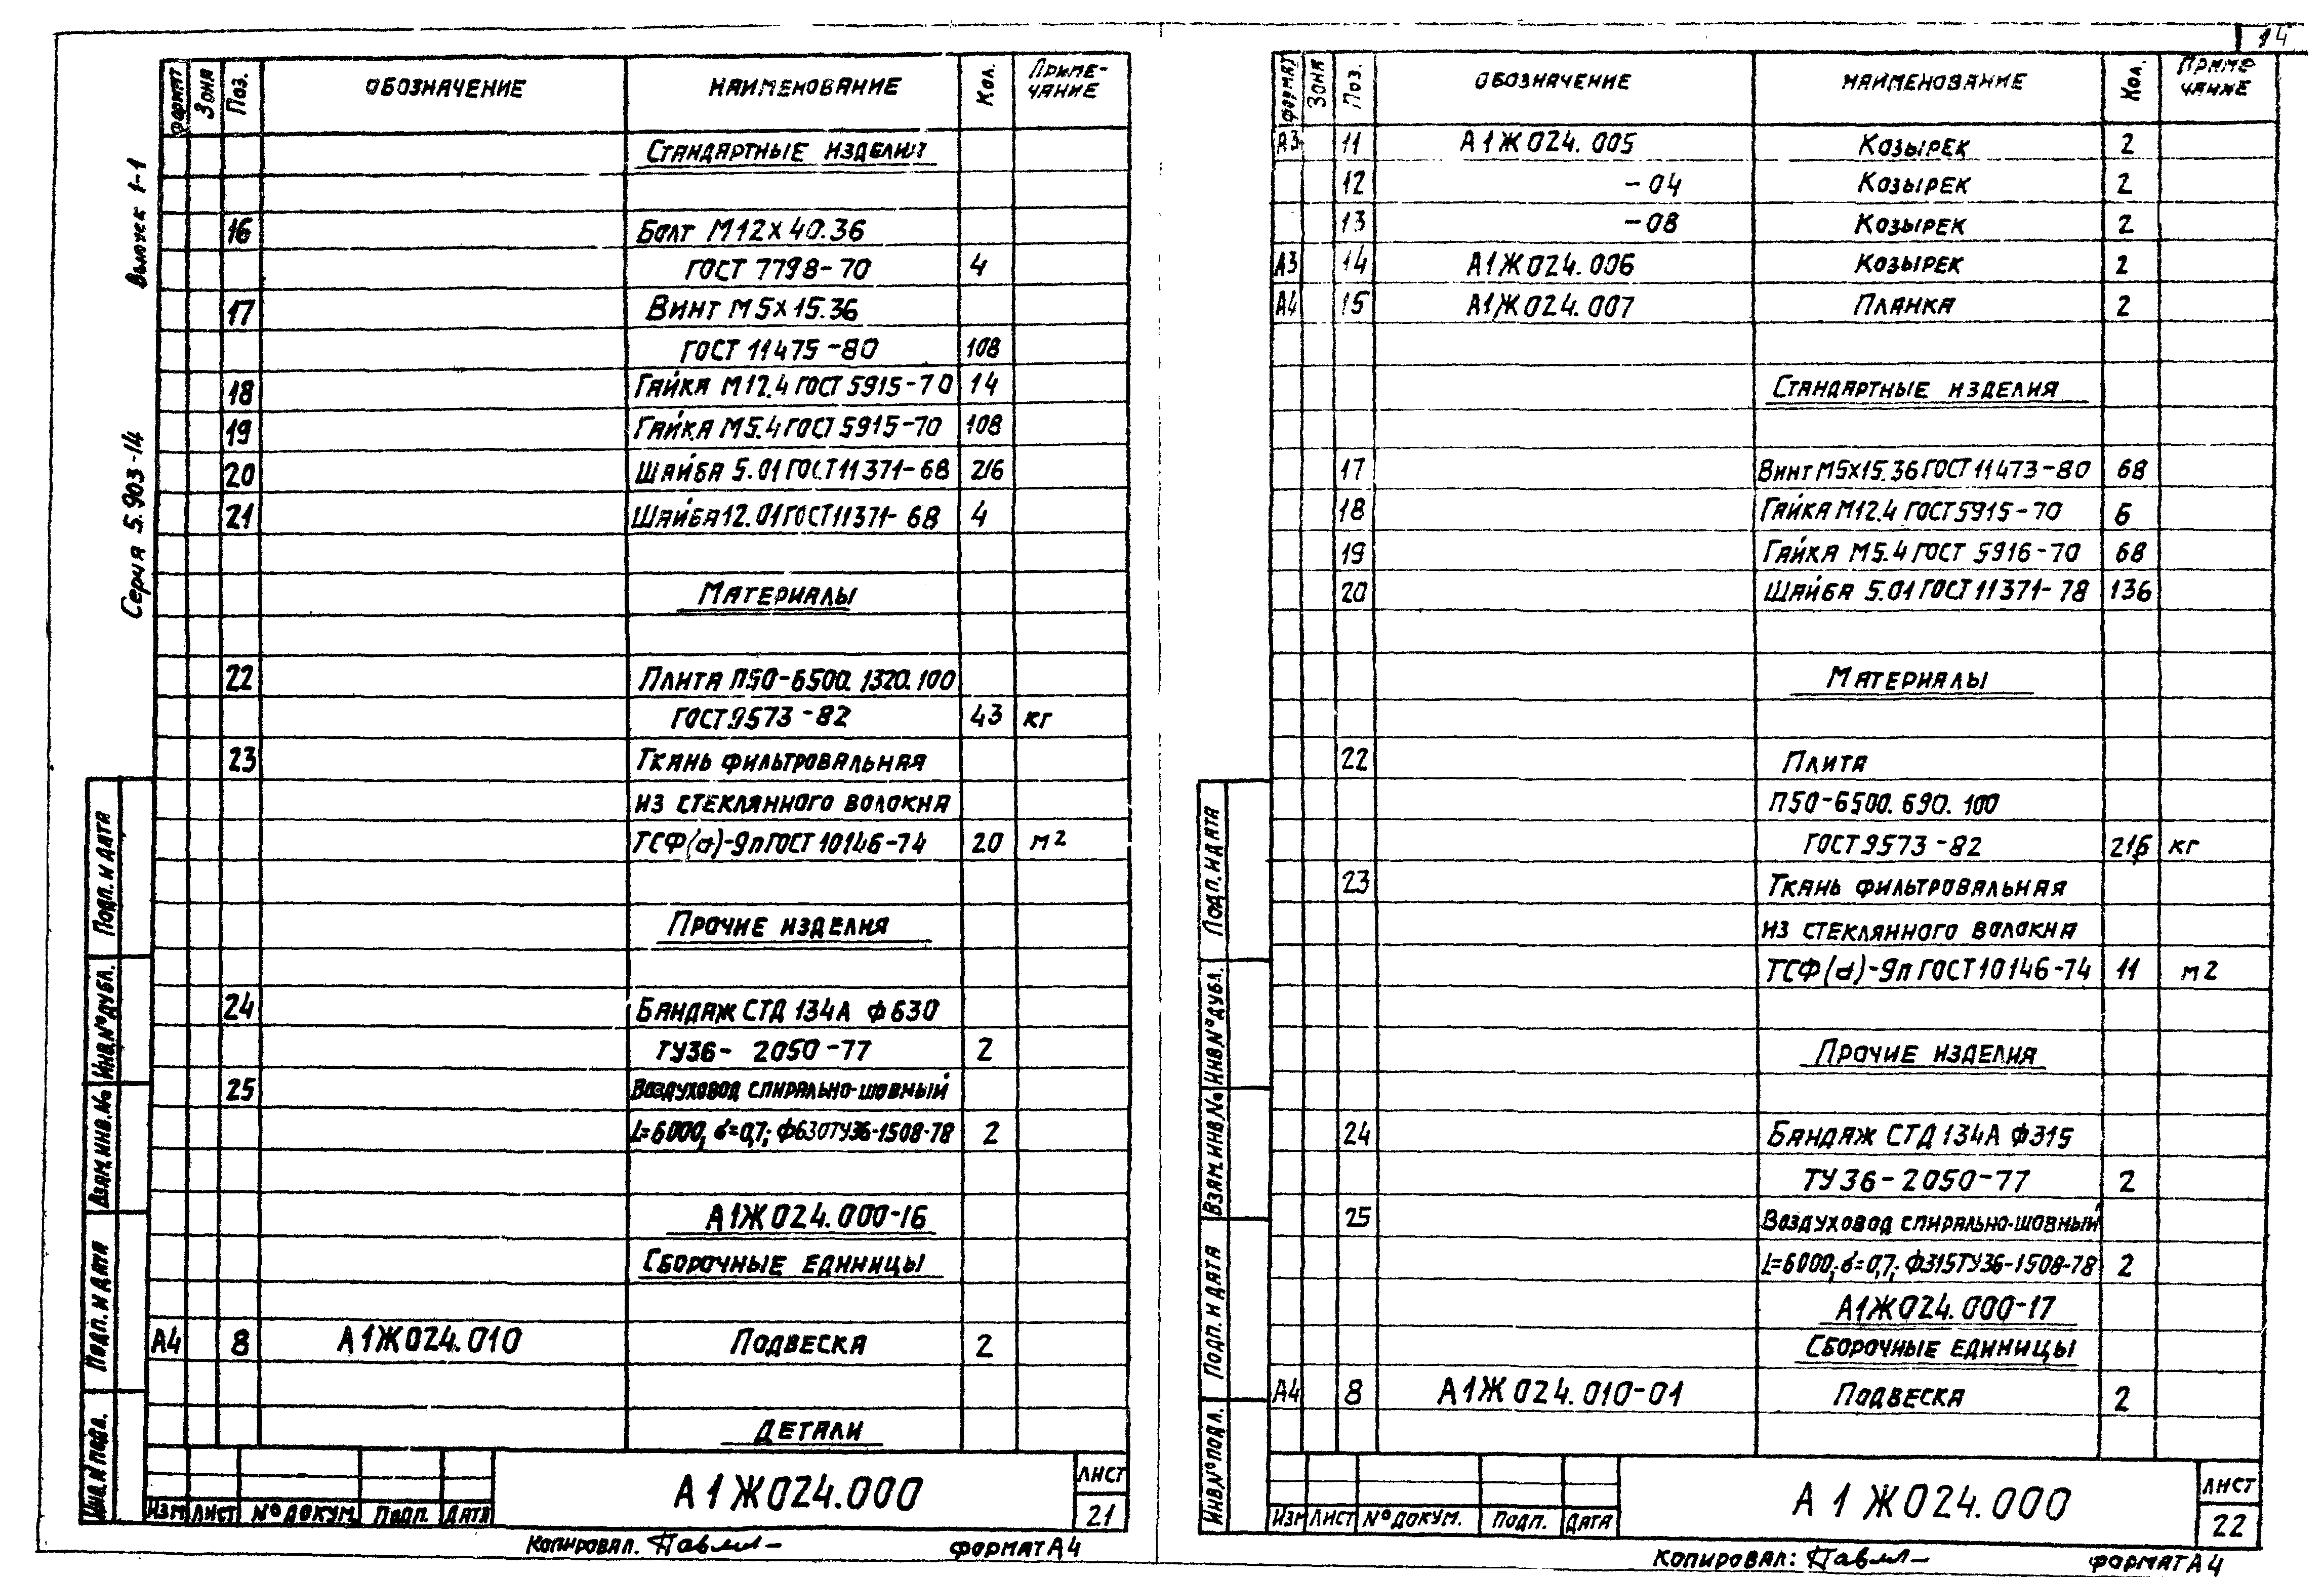 14
Серия 5.903-14 Выпуск 1-1
Формат Зона Поз. Обозначение Наименование Кол. Приме-
чание
Стандартные изделия
16 Болт М12х40.36
ГОСТ 7798-70 4
17 Винт М5х15.36
ГОСТ 11475-80 108
18 Гайка М12.4 ГОСТ 5915-70 14
19 Гайка М5.4 ГОСТ 5915-70 108
20 Шайба 5.01 ГОСТ 11371-68 216
21 Шайба 12.01 ГОСТ 11371-68 4
Материалы
22 Плита П50-6500.1320.100
ГОСТ 9573-82 43 кг
23 Ткань фильтровальная
из стеклянного волокна
ТСФ(а)-9п ГОСТ 10146-74 20 м2
Прочие изделия
24 Бандаж СТД 134А Ф630
ТУ36-2050-77 2
25 Воздуховод спирально-шовный
L=6000; б=0,7; Ф630 ТУ36-1508-78 2
А1Ж024.000-16
Сборочные единицы
А4 8 А1Ж024.010 Подвеска 2
Детали
Изм Лист № докум. Подп. Дата
А1Ж024.000
Лист
21
Инв. № подл. Подп. и дата Взам. инв. № Инв. № дубл. Подп. и дата
Копировал.
Формат А4
Формат Зона Поз. Обозначение Наименование Кол. Приме
чание
А3 11 А1Ж024.005 Козырек 2
12 -04 Козырек 2
13 -08 Козырек 2
А3 14 А1Ж024.006 Козырек 2
А4 15 А1Ж024.007 Планка 2
Стандартные изделия
17 Винт М5х15.36 ГОСТ 11473-80 68
18 Гайка М12.4 ГОСТ 5915-70 6
19 Гайка М5.4 ГОСТ 5916-70 68
20 Шайба 5.01 ГОСТ 11371-78 136
Материалы
22 Плита
П50-6500.690.100
ГОСТ 9573-82 216 кг
23 Ткань фильтровальная
из стеклянного волокна
ТСФ(а)-9п ГОСТ 10146-74 11 м2
Прочие изделия
24 Бандаж СТД 134А Ф315
ТУ36-2050-77 2
25 Воздуховод спирально-шовный
L=6000; б=0,7; Ф315 ТУ36-1508-78 2
А1Ж024.000-17
Сборочные единицы
А4 8 А1Ж024.010-01 Подвеска 2
Изм Лист № докум. Подп. Дата
А1Ж024.000
Лист
22
Инв. № подл. Подп. и дата Взам. инв. № Инв. № дубл. Подп. и дата
Копировал:
Формат А4